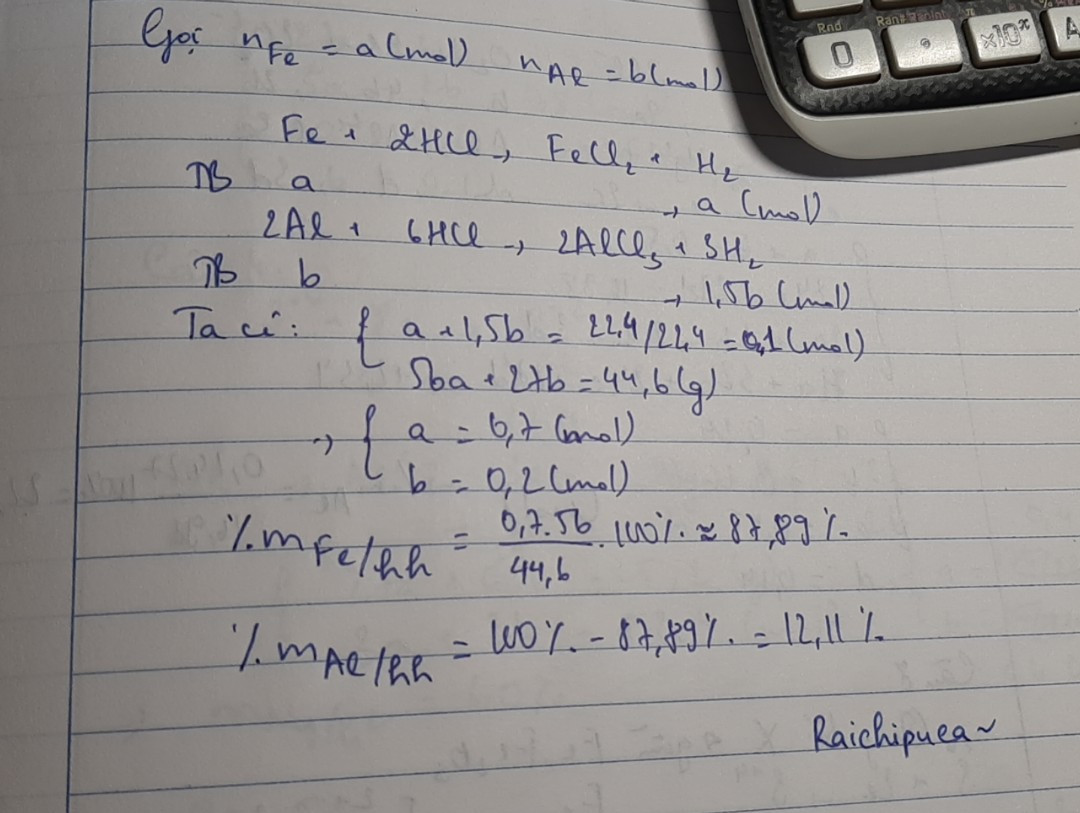 Gọi nFe = a(mol) nAl = b(mol)
Fe + 2HCl → FeCl2 + H2
TB a → a (mol)
2Al + 6HCl → 2AlCl3 + 3H2
TB b → 1,5b (mol)
Ta có: { a + 1,5b = 22,4/22,4 = 0,1 (mol)
56a + 27b = 44,6 (g)
→ { a = 0,7 (mol)
b = 0,2 (mol)
%mFe/hh = 0,7.56/44,6 . 100% ≈ 87,89%
%mAl/hh = 100% - 87,89% = 12,11%
Raichipuea~
Rnd Ran#
0 . ×10^x